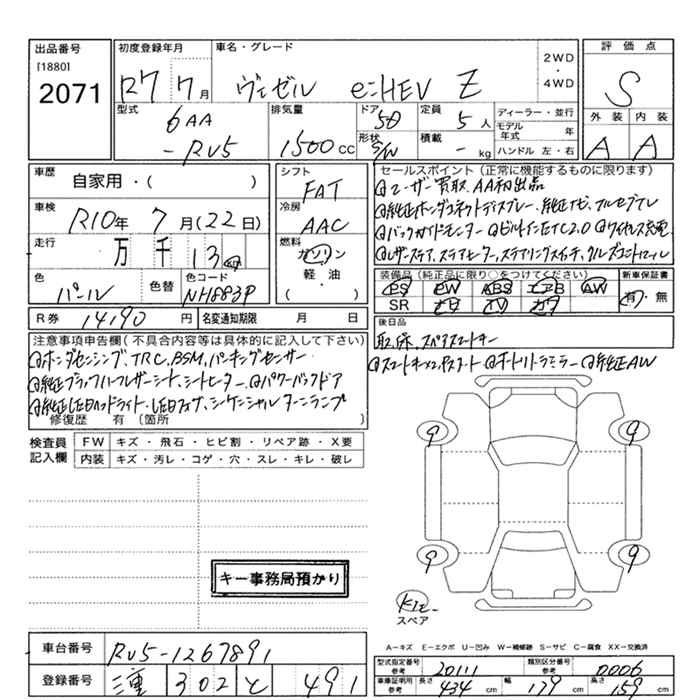 出品番号 初度登録年月 車名・グレード 2WD・4WD 評価点
[1880]
2071 R7 7月 ヴェゼル e:HEV Z S
型式 排気量 ドア 定員 ディーラー・並行 外装 内装
6AA 5D 5人 モデル年式 年 A A
-RV5 1500cc 形状 S/W 積載 - kg ハンドル 左・右
車歴 自家用・( ) シフト FAT
車検 R10年 7月(22日) 冷房 AAC
走行 万 千 13km 燃料 ガソリン 軽・油 ( )
色 パール 色替 色コード NH883P
R券 14190円 名変通知期限 月 日
セールスポイント(正常に機能するものに限ります)
◎ユーザー買取、AA初出品
◎純正ホンダコネクトディスプレー、純正ナビ、フルセグTV
◎バックガイドモニター ◎ビルトインETC2.0 ◎ワイヤレス充電
◎レザーステア、ステアヒーター、ステアリングスイッチ、クルーズコントロール
装備品(純正品に限り○をつけてください) 新車保証書
PS PW ABS エアB AW 有・無
SR ナビ TV カワ
後日品
取, 保, スペアスマートキー
◎スマートキー×2、Pスタート ◎オートリトラミラー ◎純正AW
注意事項申告欄(不具合内容等は具体的に記入して下さい)
◎ホンダセンシング、TRC、BSM、パーキングセンサー
◎純正ブラックハーフレザーシート、シートヒーター、◎パワーバックドア
◎純正LEDヘッドライト、LEDフォグ、シーケンシャルターンランプ
修復歴 有(箇所 )
検査員記入欄 FW キズ・飛石・ヒビ割・リペア跡・X要
内装 キズ・汚レ・コゲ・穴・スレ・キレ・破レ
9 9
9 9
キー事務局預かり
スペア
A=キズ E=エクボ U=凹み W=補修跡 S=サビ C=腐食 XX=交換済
車台番号 RV5-1267891
登録番号 三重 302 と 491
型式指定番号 参考 20111 類別区分番号 参考 0006
車庫証明用 参考 長さ 434cm 幅 179cm 高さ 159cm